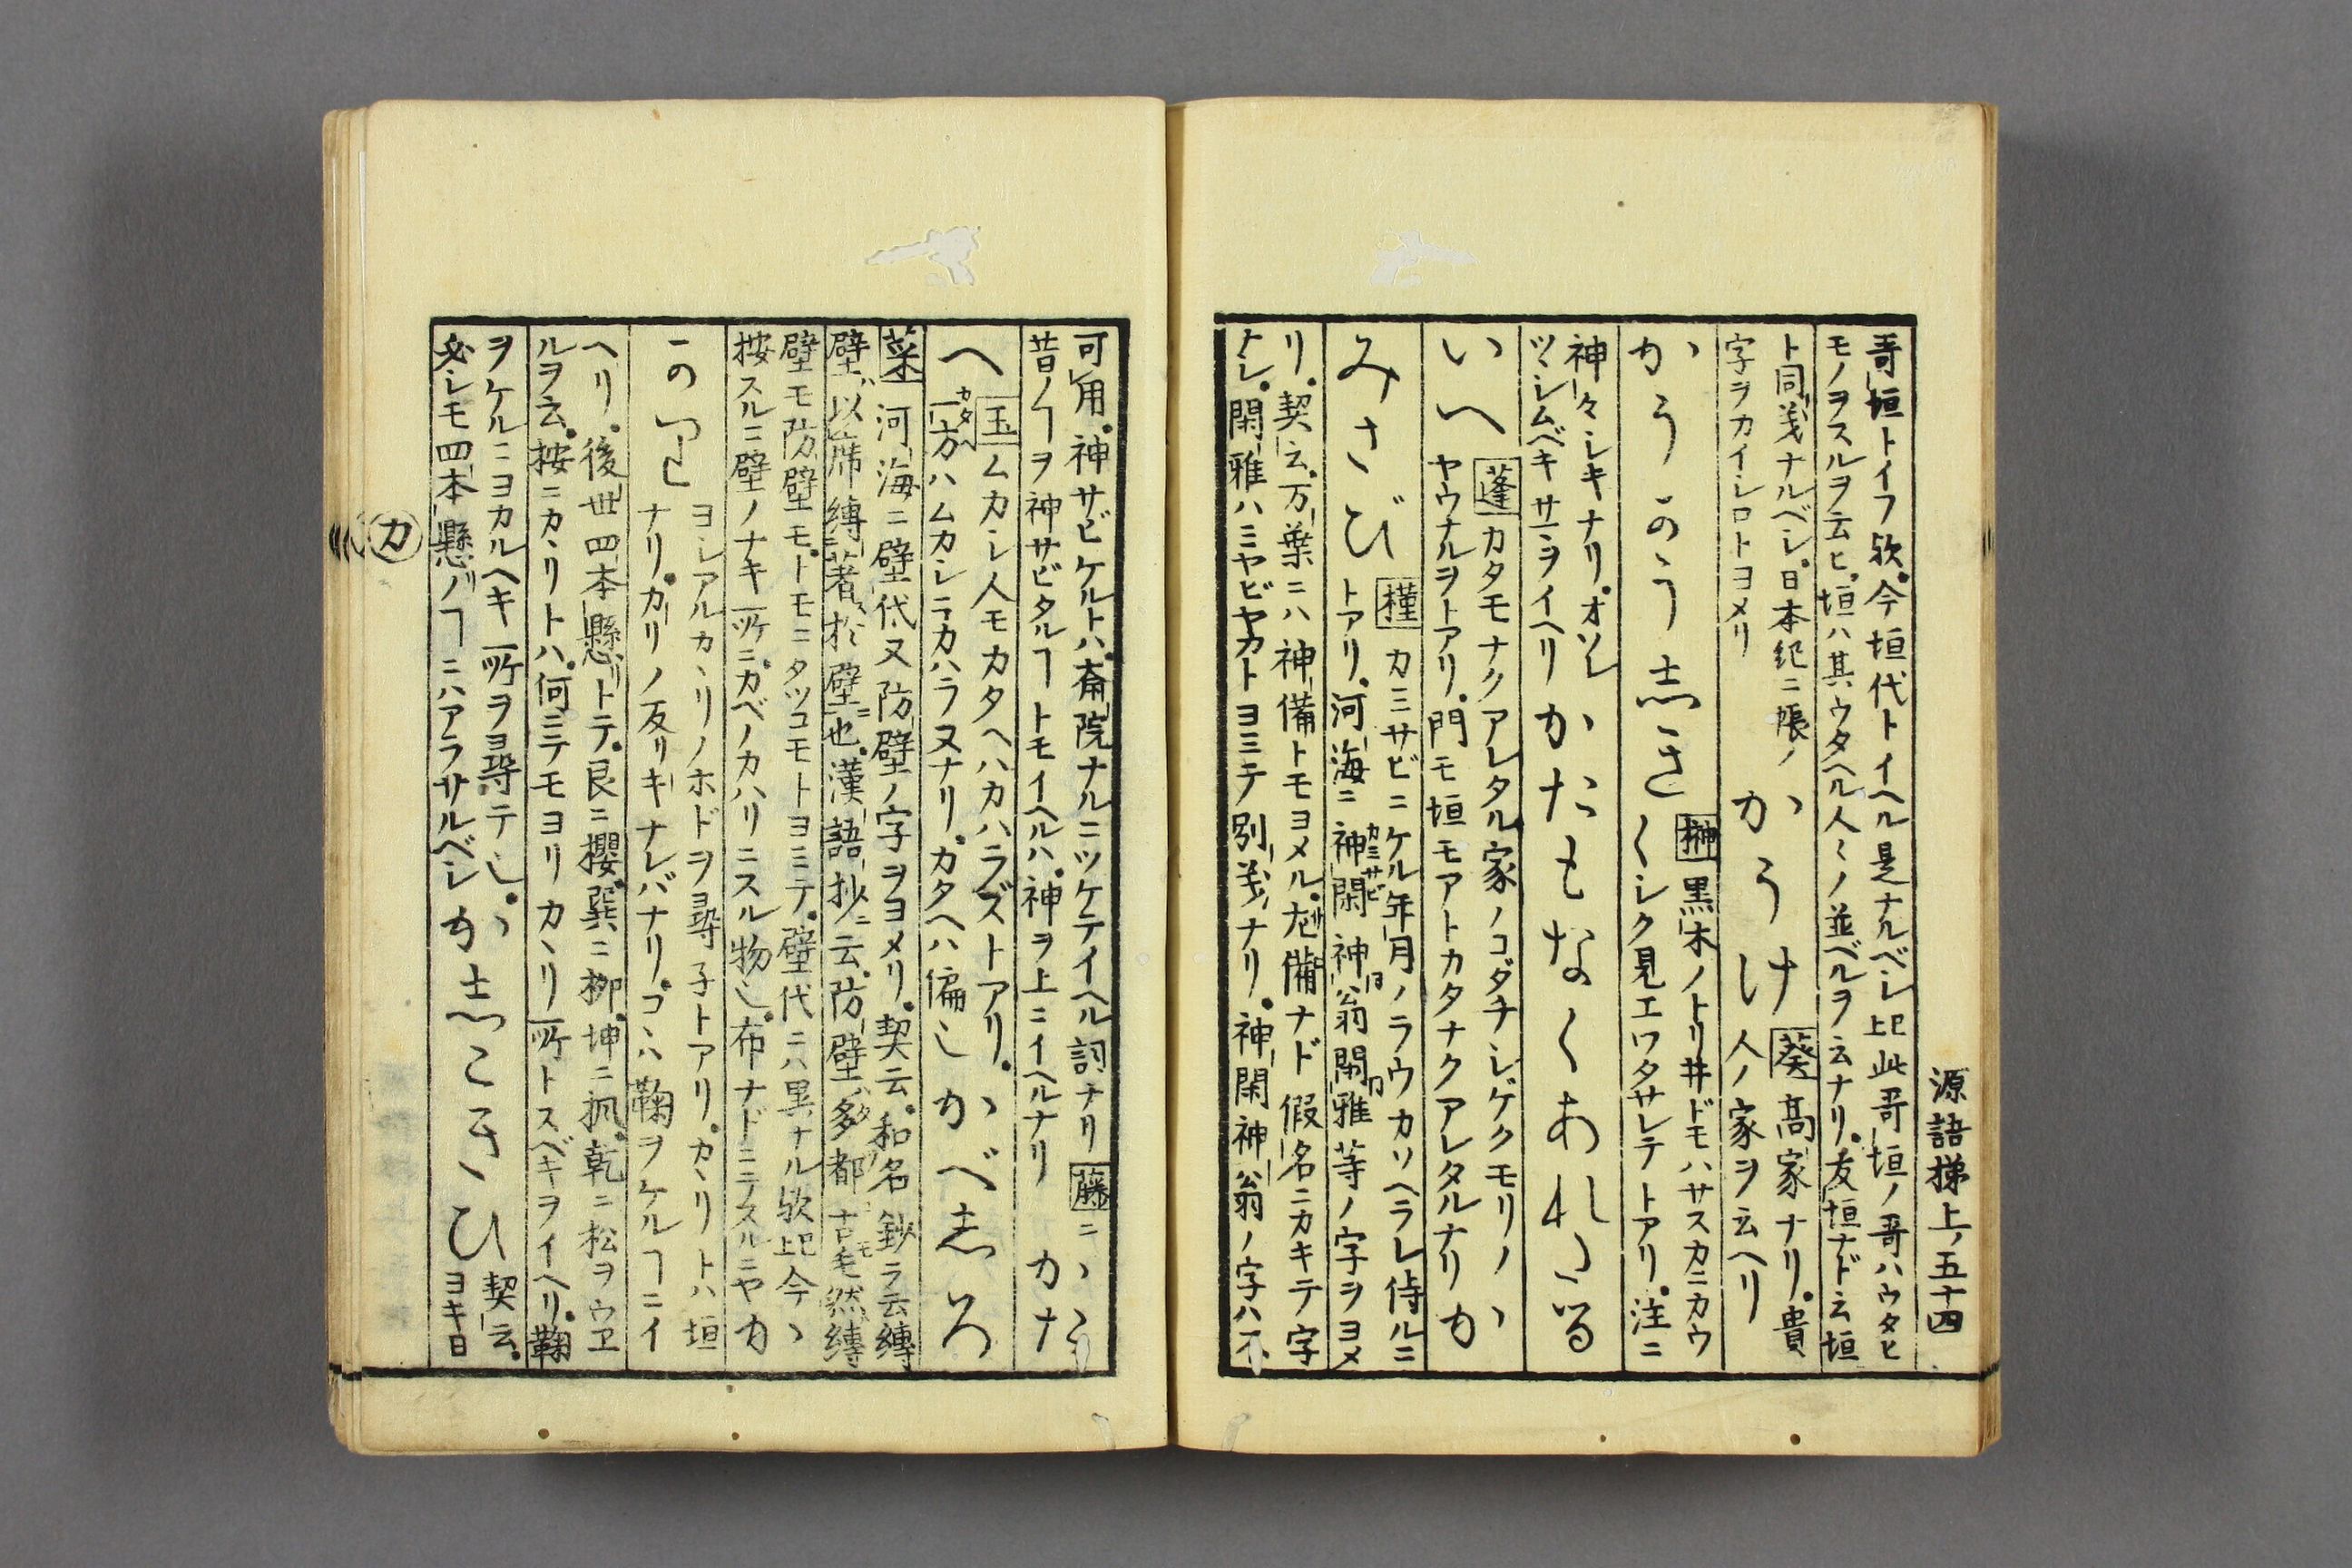 源語梯上ノ五十四
哥垣トイフ欤。今垣代トイヘル是ナルベシ上巳此哥垣ノ哥ハウタヒ
モノヲスルヲ云ヒ。垣ハ其ウタヘル人〻ノ並ベルヲ云ナリ。友垣ナド云垣
ト同義ナルベシ。日本紀ニ帳ノ
字ヲカイシロトヨメリ
かうけ
葵 高家ナリ。貴
人ノ家ヲ云ヘリ
かうのうしき
榊 黒木ノトリ井ドモハサスカニカウ
〱シク見エワタサレテトアリ。注ニ
神々シキナリ。オソレ
ツヽシムベキサマヲイヘリ
かたもなくあれたる
いへ
蓬 カタモナクアレタル家ノコダチシゲクモリノ
ヤウナルヲトアリ。門モ垣モアトカタナクアレタルナリ
かみさび
槿 カミサビニケル年月ノラウカソヘラレ侍ルニ
トアリ。河海ニ神閑 神翁 閑雅等ノ字ヲヨメ
リ。契云。万葉ニハ神備トモヨメル。
ナシ。閑雅ハミヤビヤカトヨミテ別義ナリ。神閑神翁ノ字ハ不
可用。神サビケルトハ。斎院ナルニツケテイヘル詞ナリ
昔ノヿヲ神サビタルヿトモイヘルハ。神ヲ上ニイヘルナリ
かたへ
玉 ムカシ人モカタヘハカハラズトアリ。
一方ハムカシニカハラヌナリ。カタヘハ偏也
かべしろ
菜 河海ニ壁代又防壁ノ字ヲヨメリ。契云。和名鈔ラ云縛
壁以席縛著於壁也。漢語抄ニ云。防壁多都古毛然縛
壁モ防壁モ。トモニタツコモトヨミテ。壁代ニハ異ナル欤上巳今
按スルニ壁ノナキ所ニ。カベノカハリニスル物也。布ナドニテスルニヤ
かゝりのつ
ヨシアルカヽリノホドヲ尋子トアリ。カヽリトハ垣
ナリ。カリノ反リキナレバナリ。コハ鞠ヲケルヿニイ
ヘリ。後世四本懸トテ。艮ニ櫻。巽ニ柳。坤ニ楓。乾ニ松ヲウヱ
ルヲ云。按ニカヽリトハ。何ニテモヨリカヽリ所トスベキヲイヘリ。鞠
ヲケルニヨカルヘキ所ヲヨ尋テ也。
必シモ四本懸ノヿニハアラサルベシ
かしこきひ
契云。
ヨキ日
カ